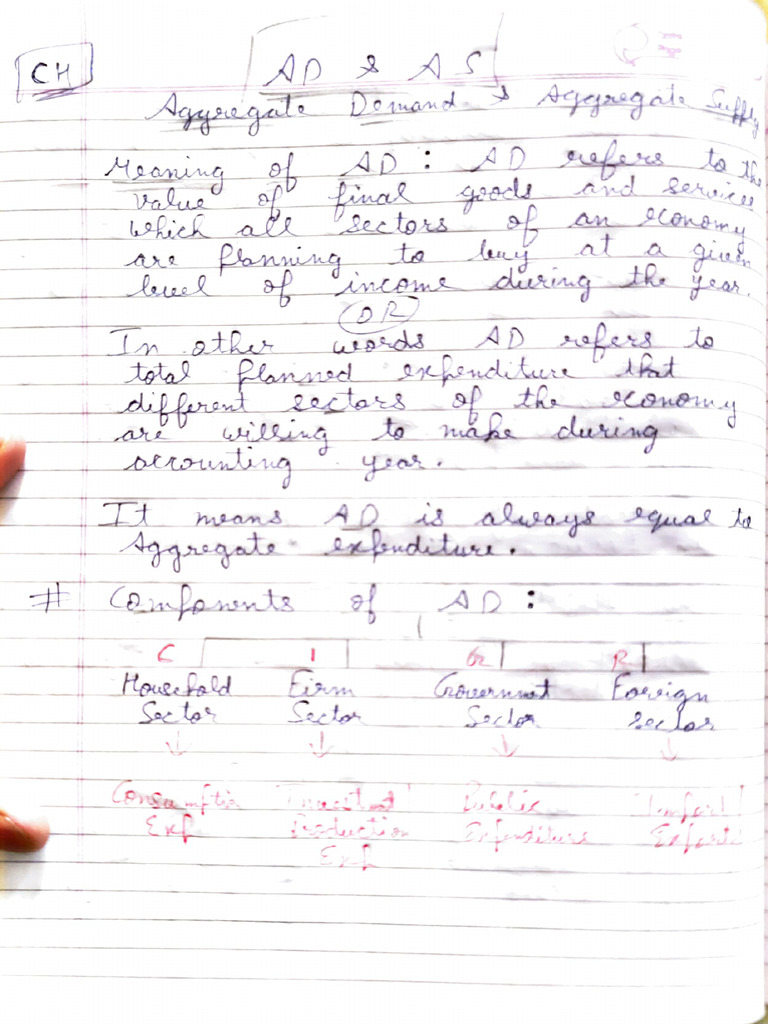 CH
AD & AS
Aggregate Demand & Aggregate Supply
Meaning of AD : AD refers to the
value of final goods and services
which all sectors of an economy
are planning to buy at a given
level of income during the year.
OR
In other words AD refers to
total planned expenditure that
different sectors of the economy
are willing to make during
accounting year.
It means AD is always equal to
Aggregate expenditure.
# Components of AD :
C I G
Household Firm Government Foreign
Sector Sector Sector sector
Consumption Investment Public Import
Exp Production Expenditure Exports
Exp